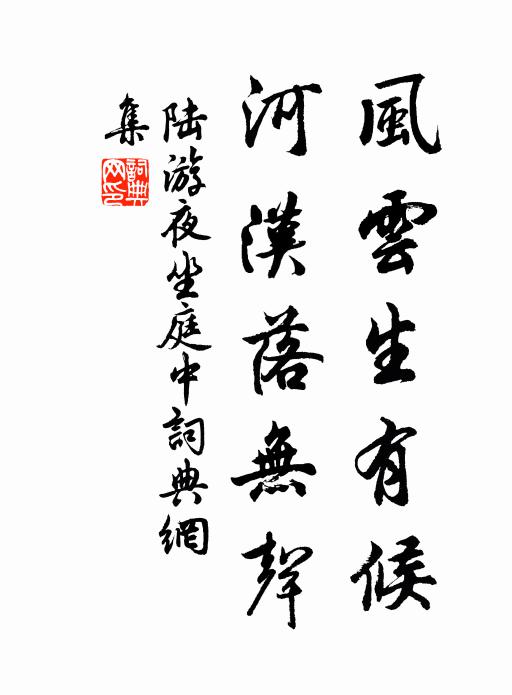 風雲生有候
河漢落無聲
陆游夜坐庭中詞典網
集
詞典
网印